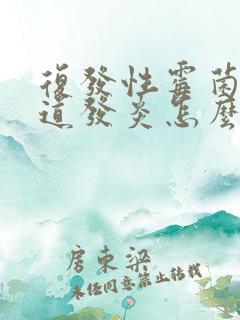 復發性霉菌
道發炎怎麼
房東梁
未经同意禁止转载